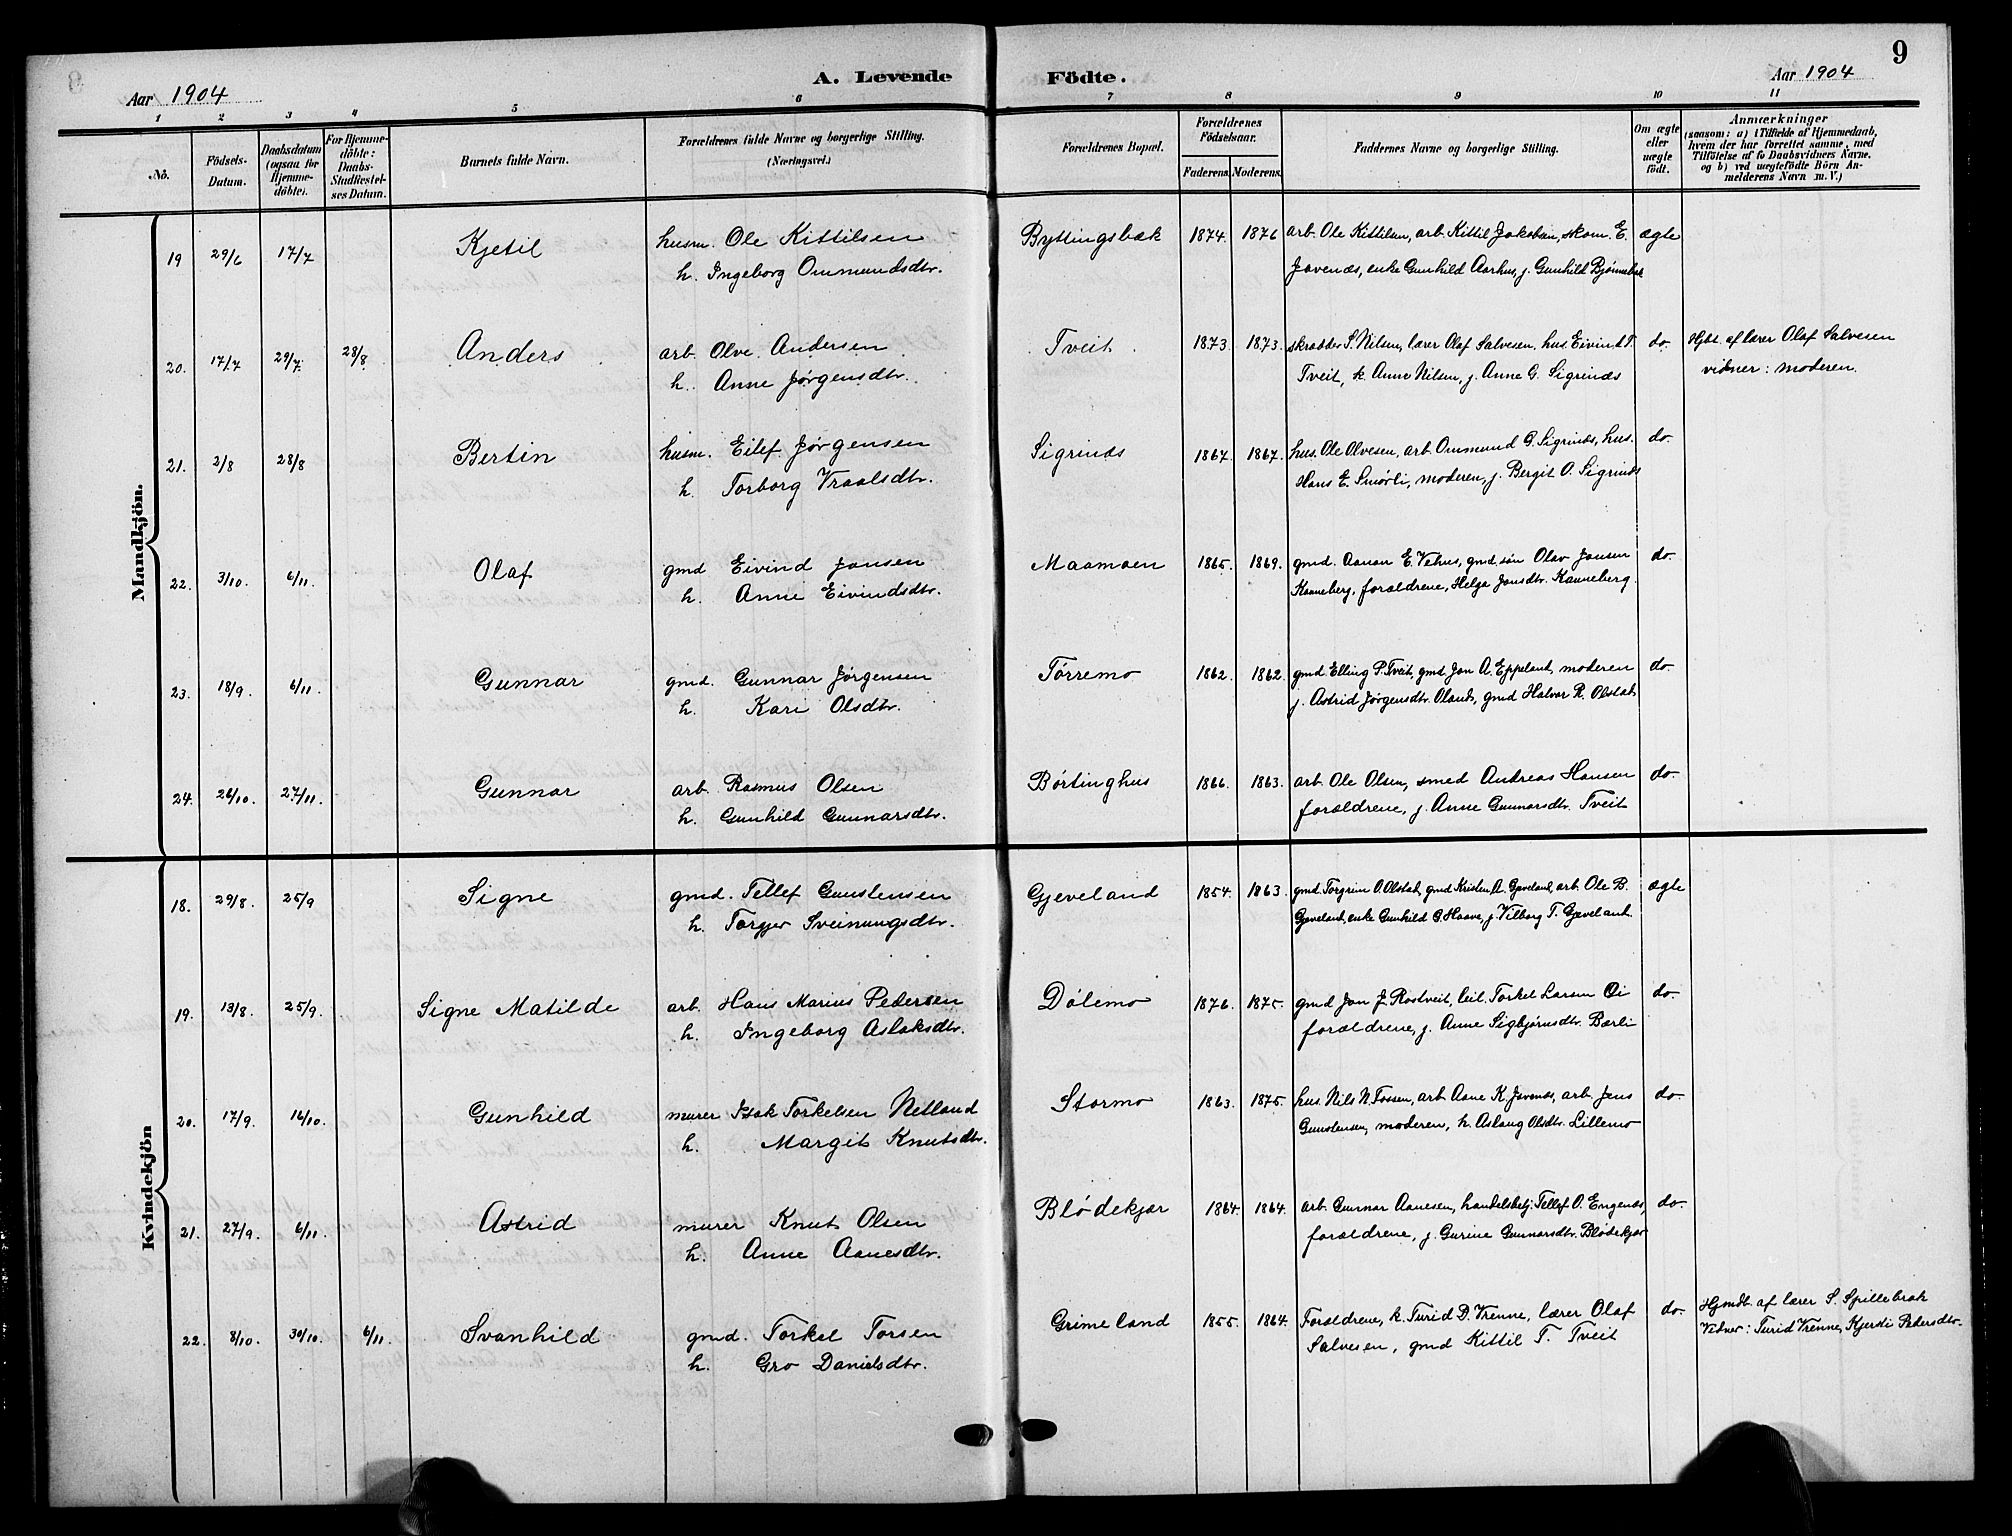 9
A. Levende Födte.
Aar 1904
Aar 1904
1 2 3 4 5 6 7 8 9 10 11
No.
Födsels-Datum.
Daabsdatum (ogsaa for Hjemme-döbte).
For Hjemme-döbte: Daabs-Stadfæstel-ses Datum.
Barnets fulde Navn.
Forældrenes fulde Navne og borgerlige Stilling. (Næringsvei.)
Forældrenes Bopæl.
Forældrenes Födselsaar.
Faderens. Moderens.
Faddernes Navne og borgerlige Stilling.
Om ægte eller uægte födt.
Anmærkninger
(saasom: a) i Tilfælde af Hjemmedaab, hvem der har forrettet samme, med Tilföielse af to Daabsvidners Navne, og b) ved uægtefödte Börn An-melderens Navn m. V.)
Mandkjön.
19 29/6 17/7 Kjetil husm. Ole Kittilsen Byttingsbæk 1874. 1876 arb. Ole Kittilsen, arb. Kittil Jakobsen, skom. E. ægte
h. Ingeborg Ommundsdtr. Jovenæs, enke Gunhild Aarhus, j. Gunhild
20. 17/7 29/7. 28/8 Anders arb. Olve Andersen Tveit 1873. 1873. skrædder S. Nilsen, lærer Olaf Salvesen, hus. Eivind T. do. Hjdt. af lærer Olaf Salvesen
h. Anne Jørgensdtr. Tveit, k. Anne Nilsen, j. Anne G. Sigrinæs vidner: moderen.
21. 2/8 28/8 Bertin husm. Eilef Jørgensen Sigrinæs 1867. 1867. hus. Ole Olvesen, arb. Ommund G. Sigrinæs, hus. do.
h. Torborg Vraalsdtr. Hans E. Smørli, moderen, j. Bergit O. Sigrinæs
22. 3/10. 6/11. Olaf gmd Eivind Jonsen Maamoen 1865. 1869. gmd. Aanon E. Vehus, gmd. søn Olav Jonsen do.
h. Anne Eivindsdtr. Kanneberg, forældrene, Helga Jonsdtr. Kanneberg.
23. 18/9. 6/11. Gunnar gmd. Gunnar Jørgensen Tørremo 1862. 1862. gmd Elling P. Tveit, gmd Jon A. Eppeland, moderen do.
h. Kari Olsdtr. j. Astrid Jørgensdtr. Oland, gmd Halvor R. Olstad
24. 26/10. 27/11. Gunnar arb. Rasmus Olsen Børtinghus 1866. 1863. arb. Ole Olsen, smed Andreas Hansen do.
h. Gunhild Gunnarsdtr. forældrene, j. Anne Gunnarsdtr. Tveit
Kvindekjön
18. 29/8. 25/9 Signe gmd. Tellef Gunstensen Gjeveland 1854. 1863. gmd. Torgrim O. Olstad, gmd Kristen A. Gjeveland, arb. Ole B. ægte
h. Torgjer Sveinungsdtr. Gjeveland, enke Gunhild G. Haave, j. Vilborg T. Gjeveland.
19. 13/8 25/9. Signe Matilde arb. Hans Marius Pedersen Dølemo 1876. 1875. gmd Jon J. Rostveit, leil. Torkel Larsen Oi do.
h. Ingeborg Aslaksdtr. forældrene, j. Anne Sigbjørnsdtr. Bærli
20. 17/9. 16/10. Gunhild murer Isak Torkelsen Netland Stormo 1863. 1875. hus. Nils N. Fossen, arb. Aane K. Jovenæs, arb. Jens do.
h. Margit Knutsdtr. Gunstensen, moderen, h. Aslaug Olsdtr. Lillemo
21. 27/9. 6/11. Astrid murer Knut Olsen Blødekjær 1864. 1864. arb. Gunnar Aanesen, handelsbetj. Tellef O. Engenæs, do.
h. Anne Aanesdtr. forældrene, j. Gurine Gunnarsdtr. Blødekjær
22. 8/10. 30/10. 6/11. Svanhild gmd. Torkel Torsen Grimeland 1855. 1864. Forældrene, k. Turid D. Vrenne, lærer Olaf do. Hjmdt. af lærer S. Spillebrok
h. Gro Danielsdtr. Salvesen, gmd Kittil T. Tveit Vidner: Turid Vrenne, Kjersti Pedersdtr.